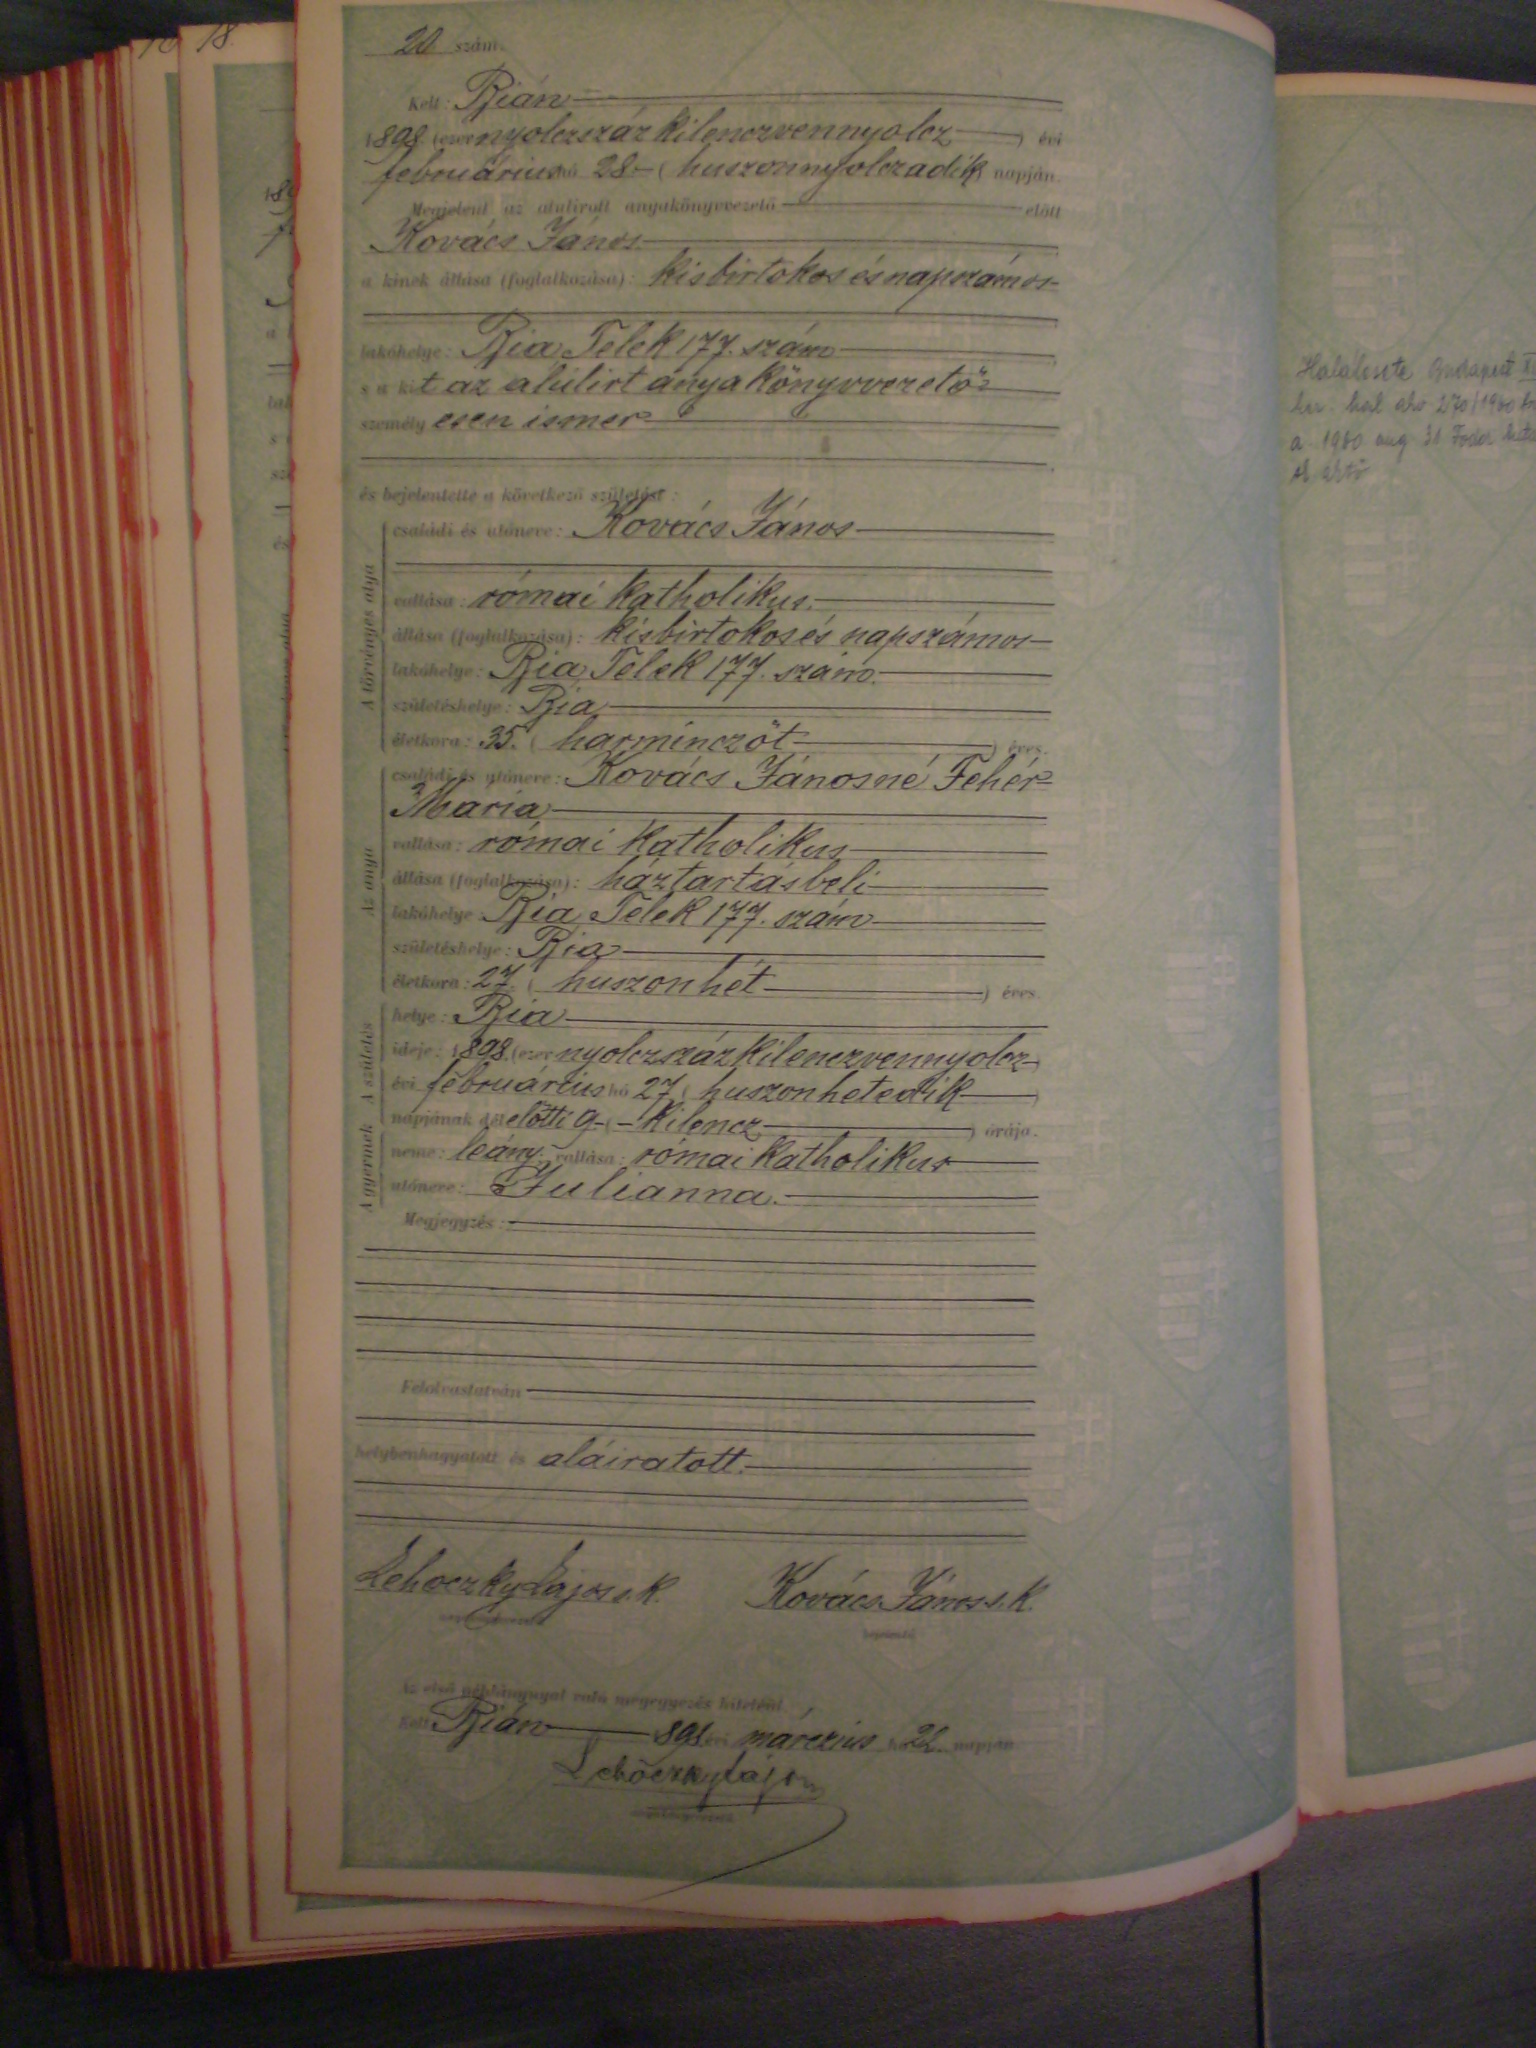 20 szám.
Kelt: Bián
1898. (ezernyolczszáz kilenczvennyolcz) évi
februárius hó 28 - (huszonnyolczadik) napján.
Megjelent az alulirott anyakönyvvezető előtt
Kovács János
a kinek állása (foglalkozása): kisbirtokos és napszámos
lakóhelye: Bia Telek 177. szám
s a kit az alulirt anyakönyvvezető
személyesen ismer
és bejelentette a következő születést:
A törvényes atya
családi és utóneve: Kovács János
vallása: római katholikus.
állása (foglalkozása): kisbirtokos és napszámos
lakóhelye: Bia Telek 177. szám.
születéshelye: Bia
életkora: 35. (harminczöt) éves.
Az anya
családi és utóneve: Kovács Jánosné Fehér
Mária
vallása: római katholikus
állása (foglalkozása): háztartásbeli
lakóhelye: Bia Telek 177. szám
születéshelye: Bia
életkora: 27. (huszonhét) éves.
A születés
helye: Bia
ideje: 1898. (ezernyolczszáz kilenczvennyolcz)
évi februárius hó 27. (huszonhetedik)
napjának délelőtti 9 - (- kilencz) órája.
A gyermek
neme: leány. vallása: római katholikus
utóneve: Julianna.
Megjegyzés:
Felolvastatván
helybenhagyatott és aláiratott.
Lehoczky Lajos s.k. Kovács János s.k.
anyakönyvvezető bejelentő
Az első példánynyal való megegyezés hiteléül
Kelt Bián 898 évi márczius hó 22. napján
Lehoczky Lajos
18.
Halálesete Budapest
ker. hal. akv 270/1960
a. 1960 aug 31 Fodor